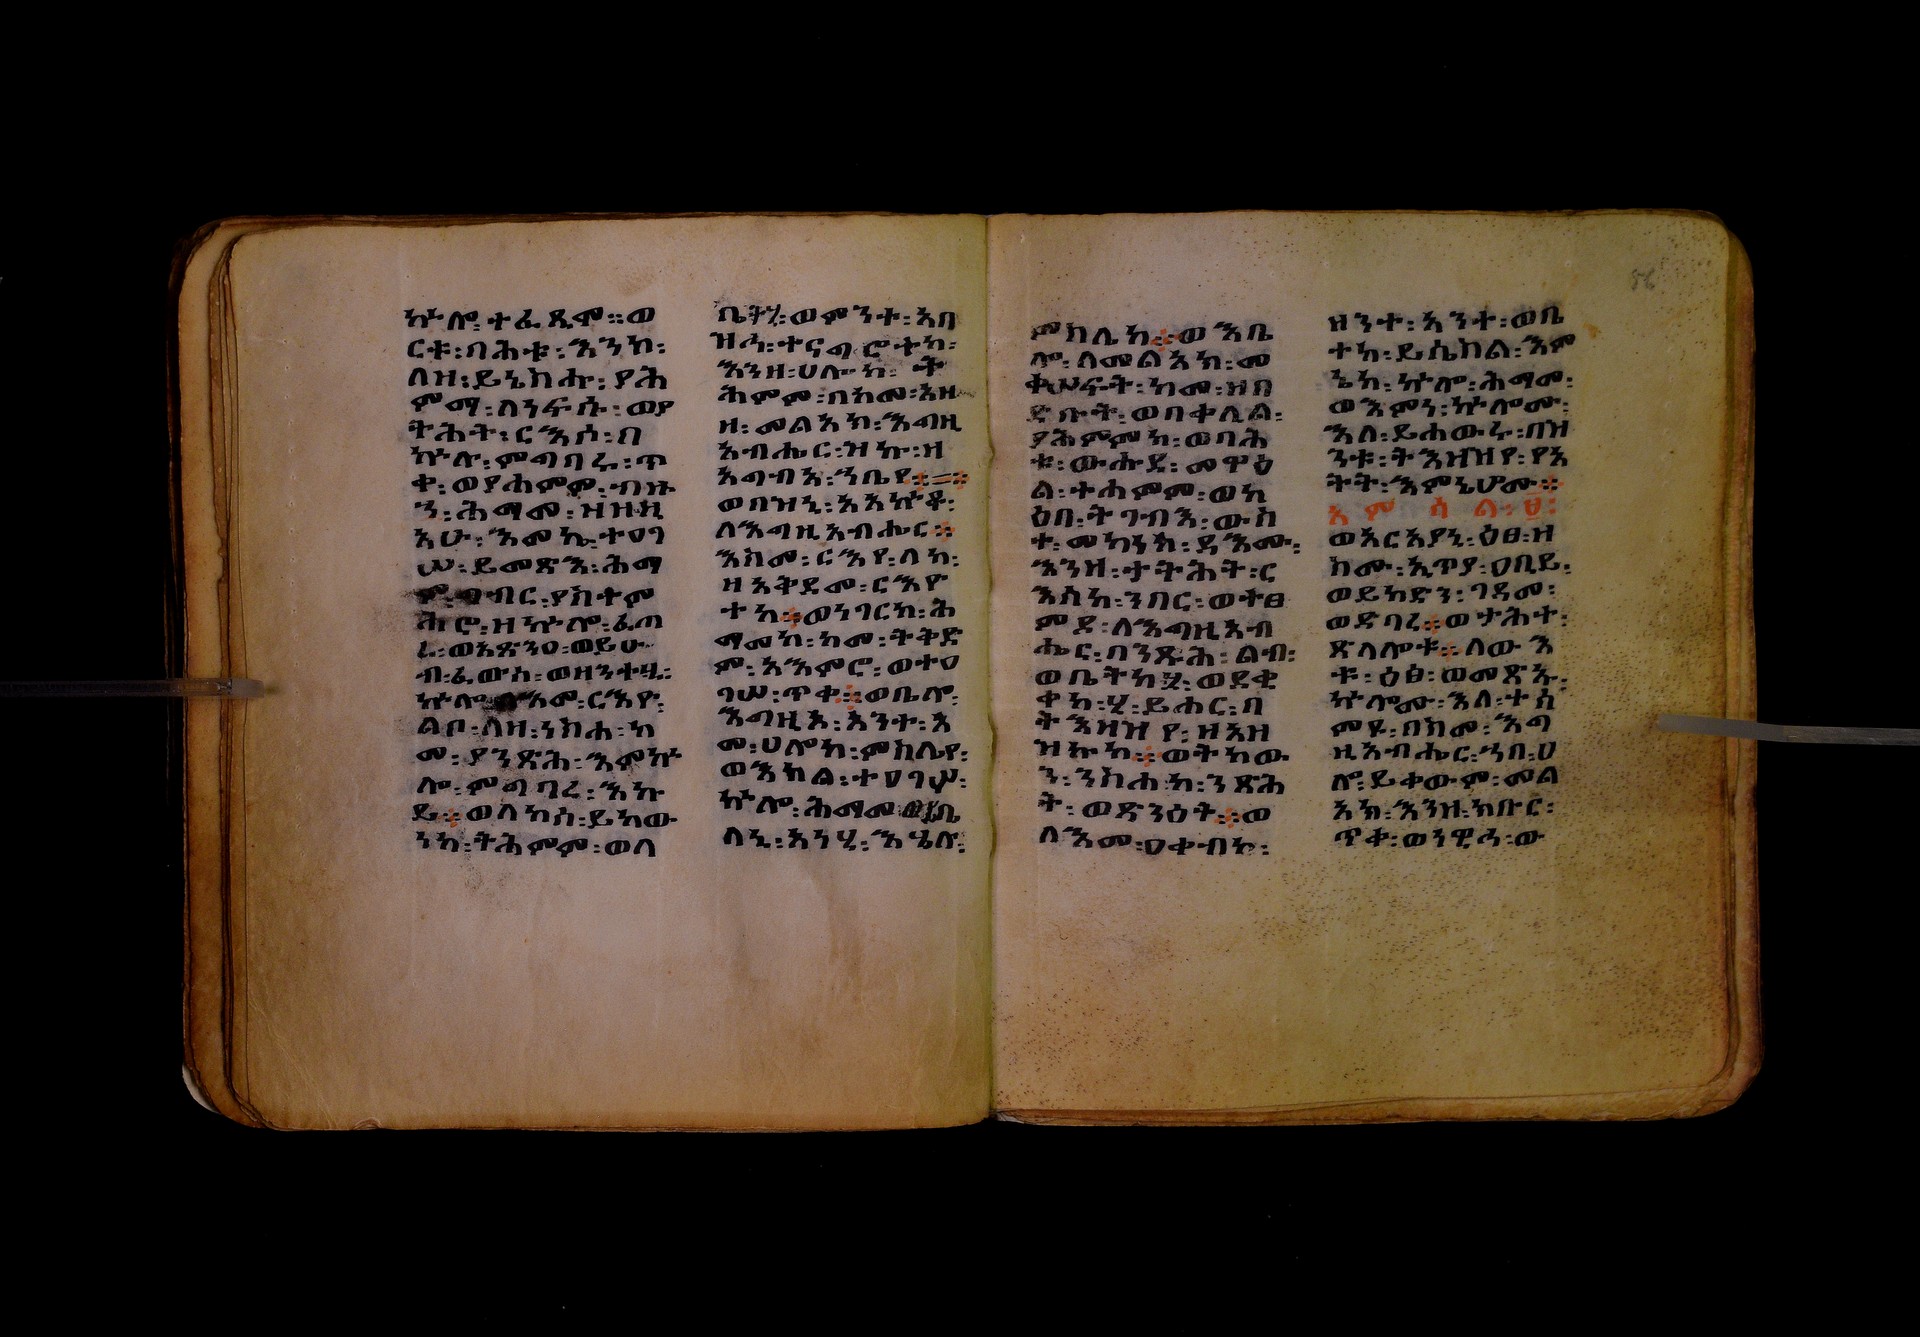 ኵሎ፡ተፈጺሞ።ወ
ርቱ፡በሕቱ፡እንከ፡
ለዝ፡ይኔክሑ፡ያሕ
ምማ፡ለነፍሱ፡ወያ
ትሕት፡ርእሶ፡በ
ኵሉ፡ምግባሩ፡ጥ
ቀ፡ወያሐምም፡ብዙ
ኅ፡ሕማመ፡ዝዘዚ
አሁ፡እመኬ፡ተዐገ
ሠ፡ይመጽእ፡ሕማ
ም፡ግብር፡ያስተም
ሕሮ፡ዝኵሎ፡ፈጣ
ሪ፡ወአጽንዐ፡ወይሁ
ብ፡ፈውስ፡ወዘንተሂ፡
ኵሎ፡እመ፡ርእየ፡
ልቦ፡ለዘ፡ነስሐ፡ከ
መ፡ያንጽሕ፡እምኵ
ሎ፡ምግባረ፡እኩ
ይ።ወለከሰ፡ይከው
ነከ፡ትሕምም፡ወለ
ቤትሂ፡ወምንተ፡እበ
ዝኃ፡ተናግሮተከ፡
እንዘ፡ሀሎከ፡ት
ሕምም፡በከመ፡አዘ
ዘ፡መልአክ፡እግዚ
አብሔር፡ዝኩ፡ዘ
አግብአ፡ኀቤየ።=።
ወበዝኒ፡አአኵቶ፡
ለእግዚአብሔር።
እስመ፡ርእየ፡ለከ፡
ዘአቅደመ፡ርእዮ
ተከ።ወነገርከ፡ሕ
ማመከ፡ከመ፡ትቅድ
ም፡አእምሮ፡ወተዐ
ገሠ፡ጥቀ።ወቤሎ፡
እግዚእ፡አንተ፡እ
መ፡ሀሎከ፡ምስሌየ፡
ወእክል፡ተዐገሦ፡
ኵሎ፡ሕማመ
ለኒ፡አነሂ፡እሄሉ፡
ምስሌከ።ወእቤ
ሎ፡ለመልአክ፡መ
ቅሠፍት፡ከመ፡ዘበ
ድቡት፡ወበቀሊል፡
ያሕምመከ፡ወባሕ
ቱ፡ውሑደ፡መዋዕ
ል፡ተሐምም፡ወካ
ዕበ፡ትገብእ፡ውስ
ተ፡መካንከ፡ዳእሙ፡
እንዘ፡ታትሕት፡ር
እሰከ፡ንበር፡ወትፀ
ምደ፡ለእግዚአብ
ሔር፡በንጹሕ፡ልብ፡
ወቤትከሂ፡ወደቂ
ቀከ፡ሂ፡ይሐር፡በ
ትእዛዝየ፡ዘአዘ
ዝኩከ።ወትከው
ን፡ንስሐከ፡ንጽሕ
ት፡ወጽንዕት።ወ
ለእመ፡ዐቀብከ፡
ዘንተ፡አንተ፡ወቤ
ተከ፡ይሴስል፡እም
ኔከ፡ኵሎ፡ሕማመ፡
ወእምነ፡ኵሎሙ፡
እለ፡ይሐውሩ፡በዝ
ንቱ፡ትእዛዝየ፡የአ
ትት፡እምኔሆሙ።
አምሳል፡፱፡
ወአርአያኒ፡ዕፀ፡ዝ
ከሙ፡ኢጥያ፡ዐቢይ፡
ወይከድን፡ገዳመ፡
ወድባረ።ወታሕተ፡
ጽላሎቱ።ለው እ
ቱ፡ዕፅ፡ወመጽኡ፡
ኵሎሙ፡እለ፡ተሰ
ምዩ፡በስመ፡እግ
ዚአብሔር፡ኀበ፡ሀ
ሎ፡ይቀውም፡መል
አክ፡እንዘ፡ክቡር፡
ጥቀ፡ወነዊኃ፡ው